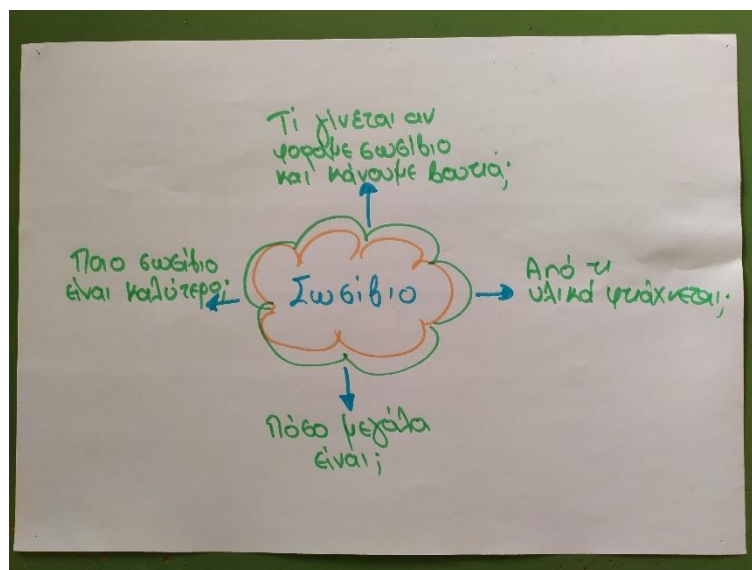 Τί γίνεται αν
φοράμε σωσίβιο
και κάνουμε βουτιά;
Ποιο σωσίβιο
είναι καλύτερο;
Σωσίβιο
Από τι
υλικά φτιάχνεται;
Πόσο μεγάλα
είναι;